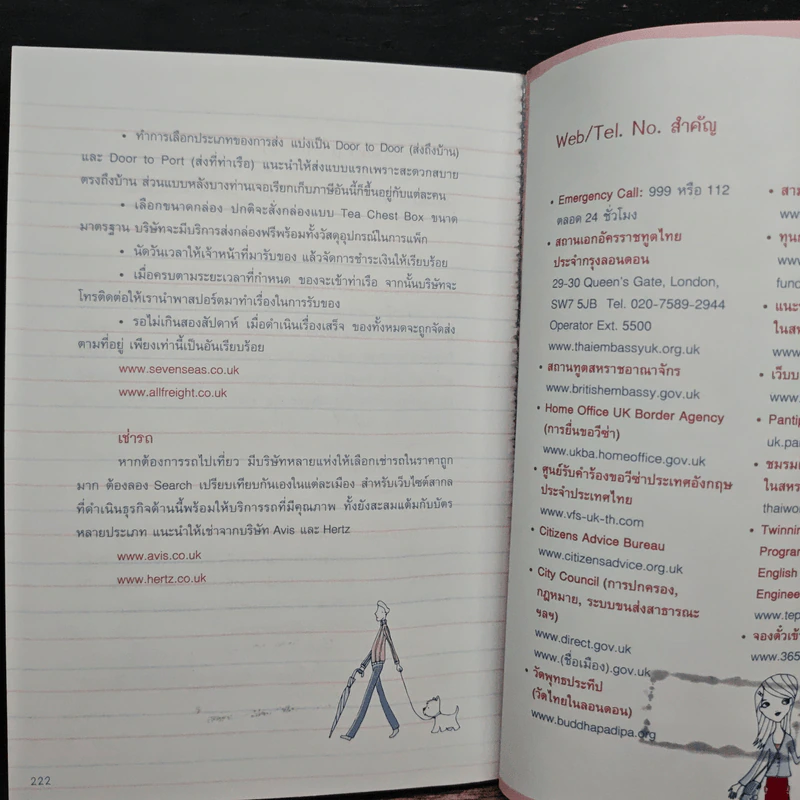 • ทำการเลือกประเภทของการส่ง แบ่งเป็น Door to Door (ส่งถึงบ้าน)
และ Door to Port (ส่งที่ท่าเรือ) แนะนำให้ส่งแบบแรกเพราะสะดวกสบาย
ตรงถึงบ้าน ส่วนแบบหลังบางท่านเจอเรียกเก็บภาษีอันนี้ก็ขึ้นอยู่กับแต่ละคน
• เลือกขนาดกล่อง ปกติจะสั่งกล่องแบบ Tea Chest Box ขนาด
มาตรฐาน บริษัทจะมีบริการส่งกล่องฟรีพร้อมทั้งวัสดุอุปกรณ์ในการแพ็ก
• นัดวันเวลาให้เจ้าหน้าที่มารับของ แล้วจัดการชำระเงินให้เรียบร้อย
• เมื่อครบตามระยะเวลาที่กำหนด ของจะเข้าท่าเรือ จากนั้นบริษัทจะ
โทรติดต่อให้เรานำพาสปอร์ตมาทำเรื่องในการรับของ
• รอไม่เกินสองสัปดาห์ เมื่อดำเนินเรื่องเสร็จ ของทั้งหมดจะถูกจัดส่ง
ตามที่อยู่ เพียงเท่านี้เป็นอันเรียบร้อย
www.sevenseas.co.uk
www.allfreight.co.uk
เช่ารถ
หากต้องการรถไปเที่ยว มีบริษัทหลายแห่งให้เลือกเช่ารถในราคาถูก
มาก ต้องลอง Search เปรียบเทียบกันเองในแต่ละเมือง สำหรับเว็บไซต์สากล
ที่ดำเนินธุรกิจด้านนี้พร้อมให้บริการรถที่มีคุณภาพ ทั้งยังสะสมแต้มกับบัตร
หลายประเภท แนะนำให้เช่าจากบริษัท Avis และ Hertz
www.avis.co.uk
www.hertz.co.uk
222
Web/Tel. No. สำคัญ
• Emergency Call: 999 หรือ 112
ตลอด 24 ชั่วโมง
• สถานเอกอัครราชทูตไทย
ประจำกรุงลอนดอน
29-30 Queen's Gate, London,
SW7 5JB Tel. 020-7589-2944
Operator Ext. 5500
www.thaiembassyuk.org.uk
• สถานทูตสหราชอาณาจักร
www.britishembassy.gov.uk
• Home Office UK Border Agency
(การยื่นขอวีซ่า)
www.ukba.homeoffice.gov.uk
• ศูนย์รับคำร้องขอวีซ่าประเทศอังกฤษ
ประจำประเทศไทย
www.vfs-uk-th.com
• Citizens Advice Bureau
www.citizensadvice.org.uk
• City Council (การปกครอง,
กฎหมาย, ระบบขนส่งสาธารณะ
ฯลฯ)
www.direct.gov.uk
www.(ชื่อเมือง).gov.uk
• วัดพุทธประทีป
(วัดไทยในลอนดอน)
www.buddhapadipa.org
• สาม
www.
• ทุน
www.
func
• แนะ
ในสห
www.
• เว็บบ
www.
• Pantip
uk.pan
• ชมรม
ในสห
thaiwo
• Twinnin
Program
English
Enginee
www.tep
• จองตั๋วเข้า
www.365